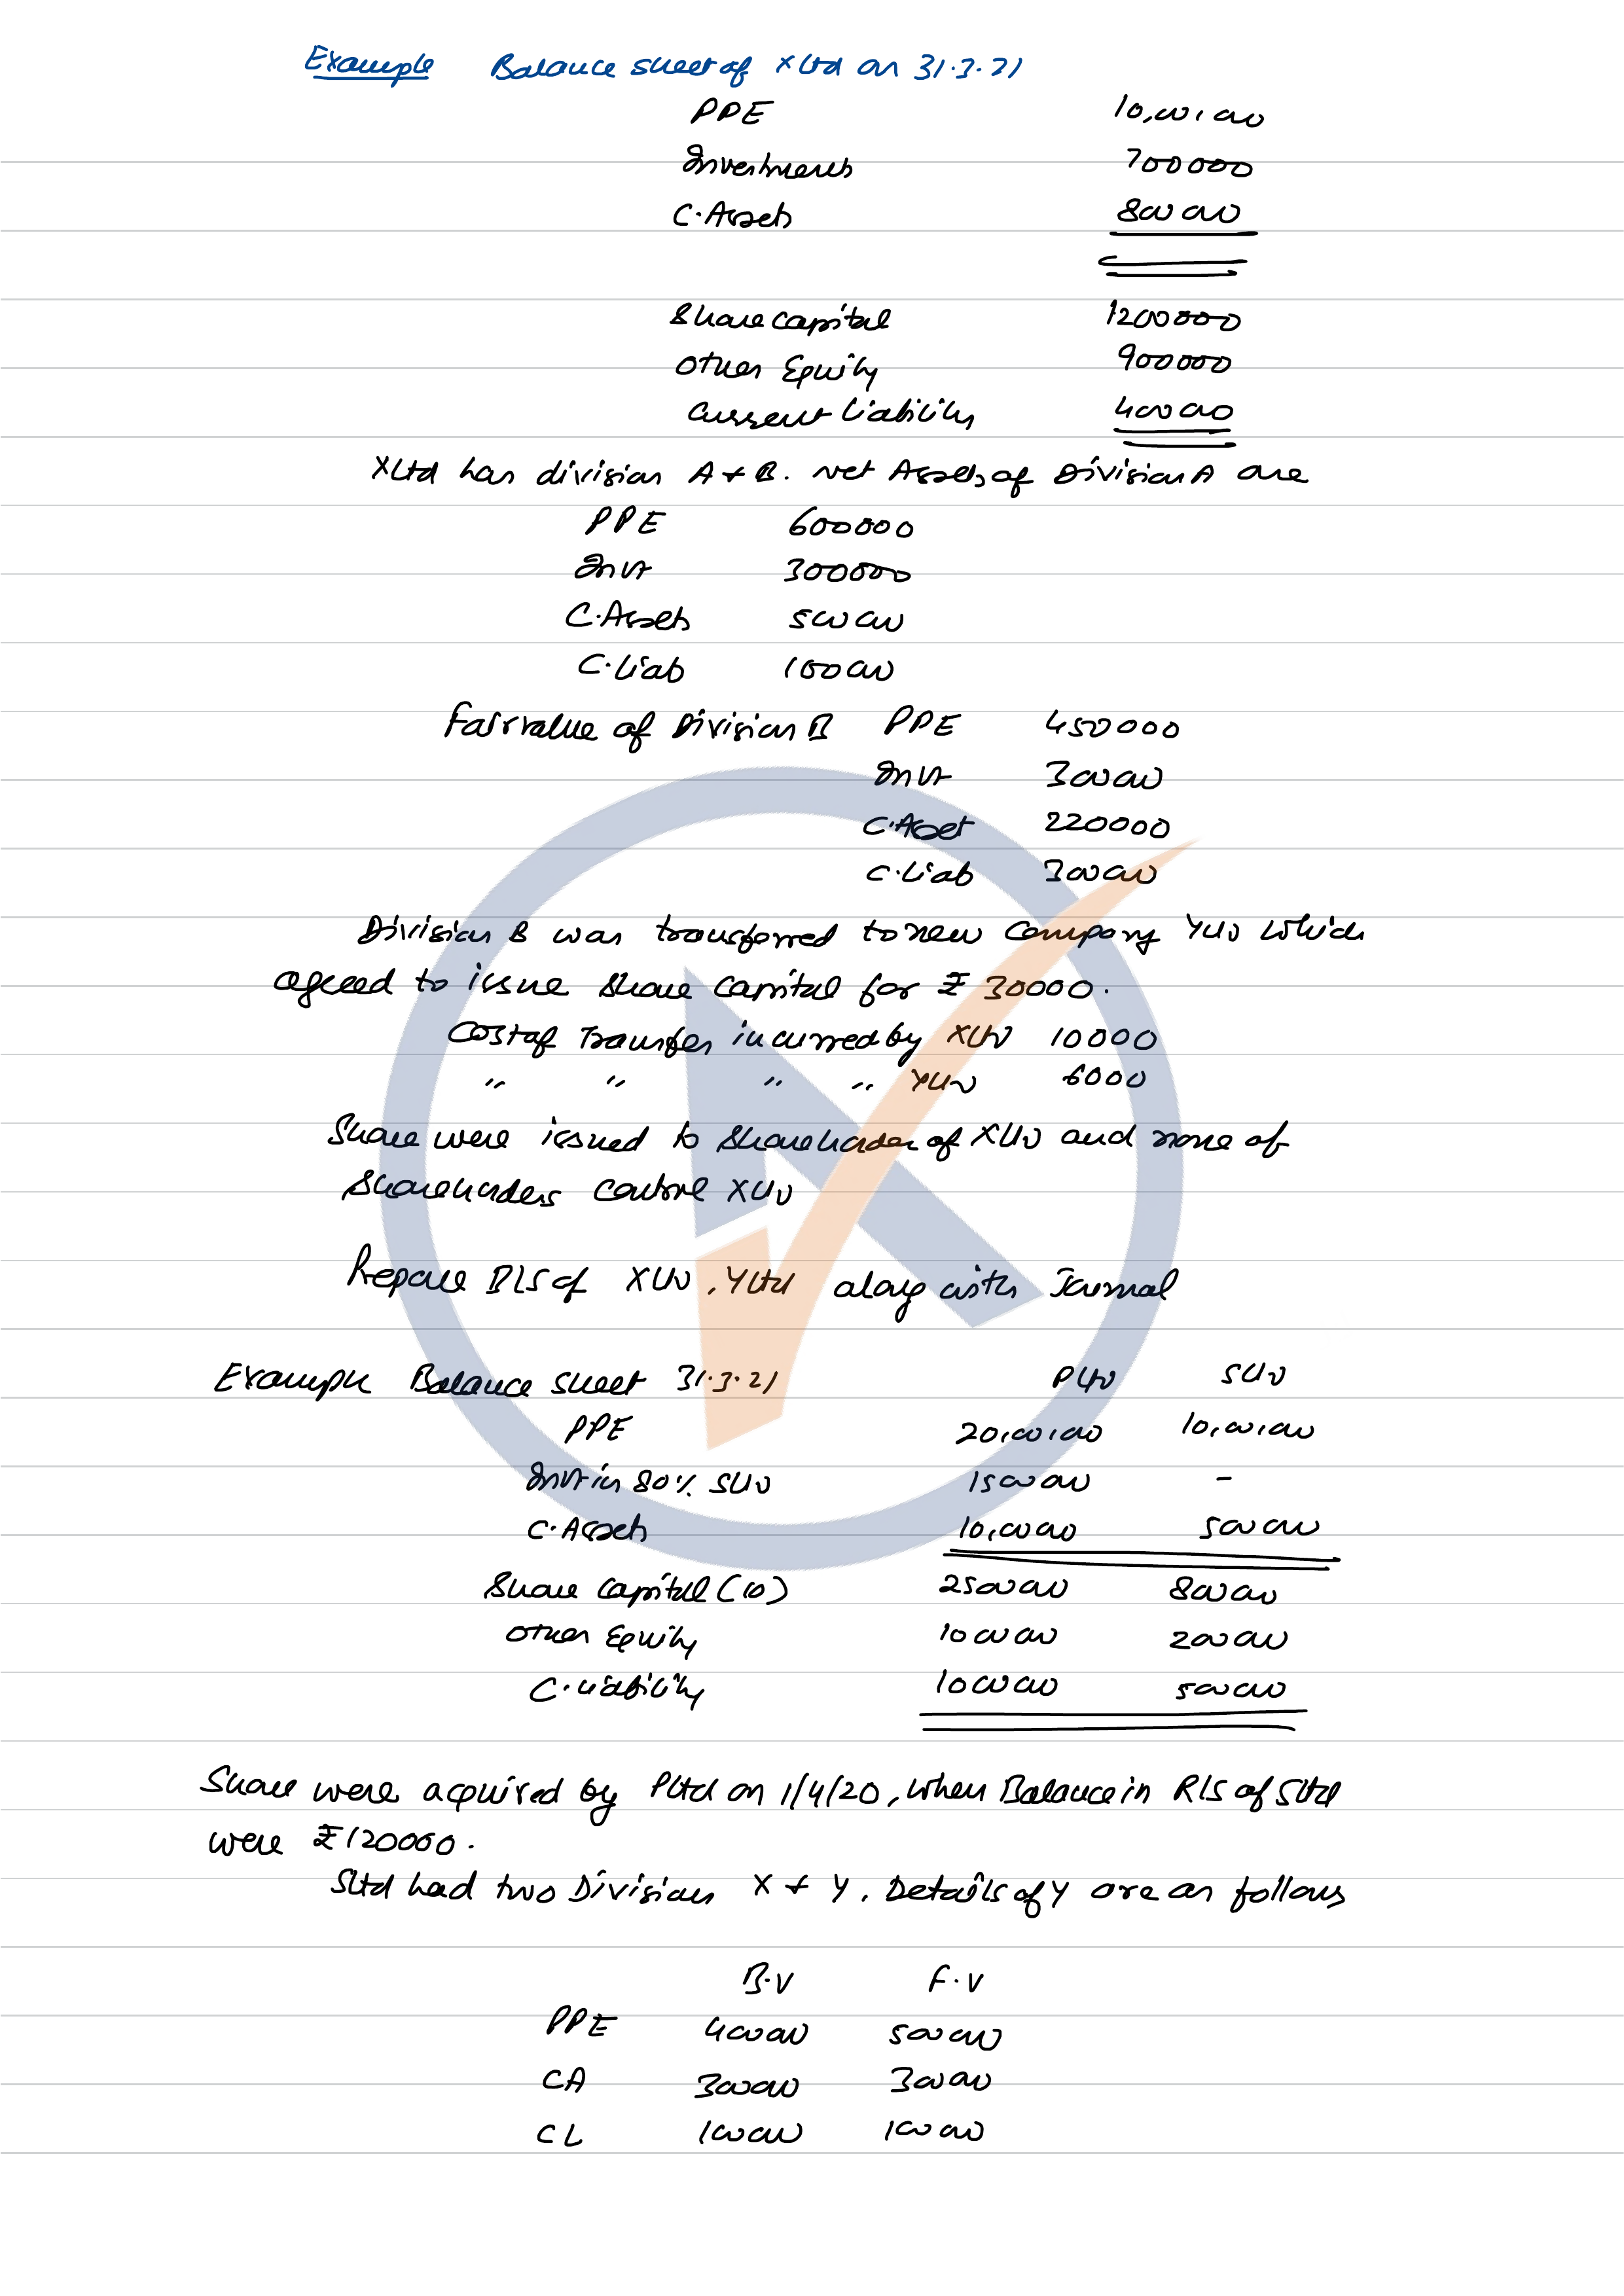 Example Balance sheet of X Ltd on 31.3.21
PPE 10,00,000
Investments 700000
C.Assets 800000
Share capital 1200000
Other Equity 900000
Current liability 400000
X Ltd has division A & B. Net Assets of Division A are
PPE 600000
Invt 300000
C.Assets 500000
C.Liab 100000
Fair value of Division B PPE 450000
Invt 300000
C.Asset 220000
C.Liab 300000
Division B was transferred to new company Y Ltd which
agreed to issue share capital for ₹ 30000.
Cost of Transfer incurred by X Ltd 10000
" " " " Y Ltd 6000
Share were issued to shareholder of X Ltd and none of
shareholders control X Ltd
Prepare B/S of X Ltd, Y Ltd along with Journal
Example Balance sheet 31.3.21 P Ltd S Ltd
PPE 20,00,000 10,00,000
Invt in 80% S Ltd 1500000 -
C.Assets 10,00000 500000
Share capital (10) 2500000 800000
Other Equity 1000000 200000
C.Liability 1000000 500000
Share were acquired by P Ltd on 1/4/20, when Balance in R/S of S Ltd
were ₹ 120000.
S Ltd had two Division X & Y. Details of Y are as follows
B.V F.V
PPE 400000 500000
CA 300000 300000
CL 100000 100000